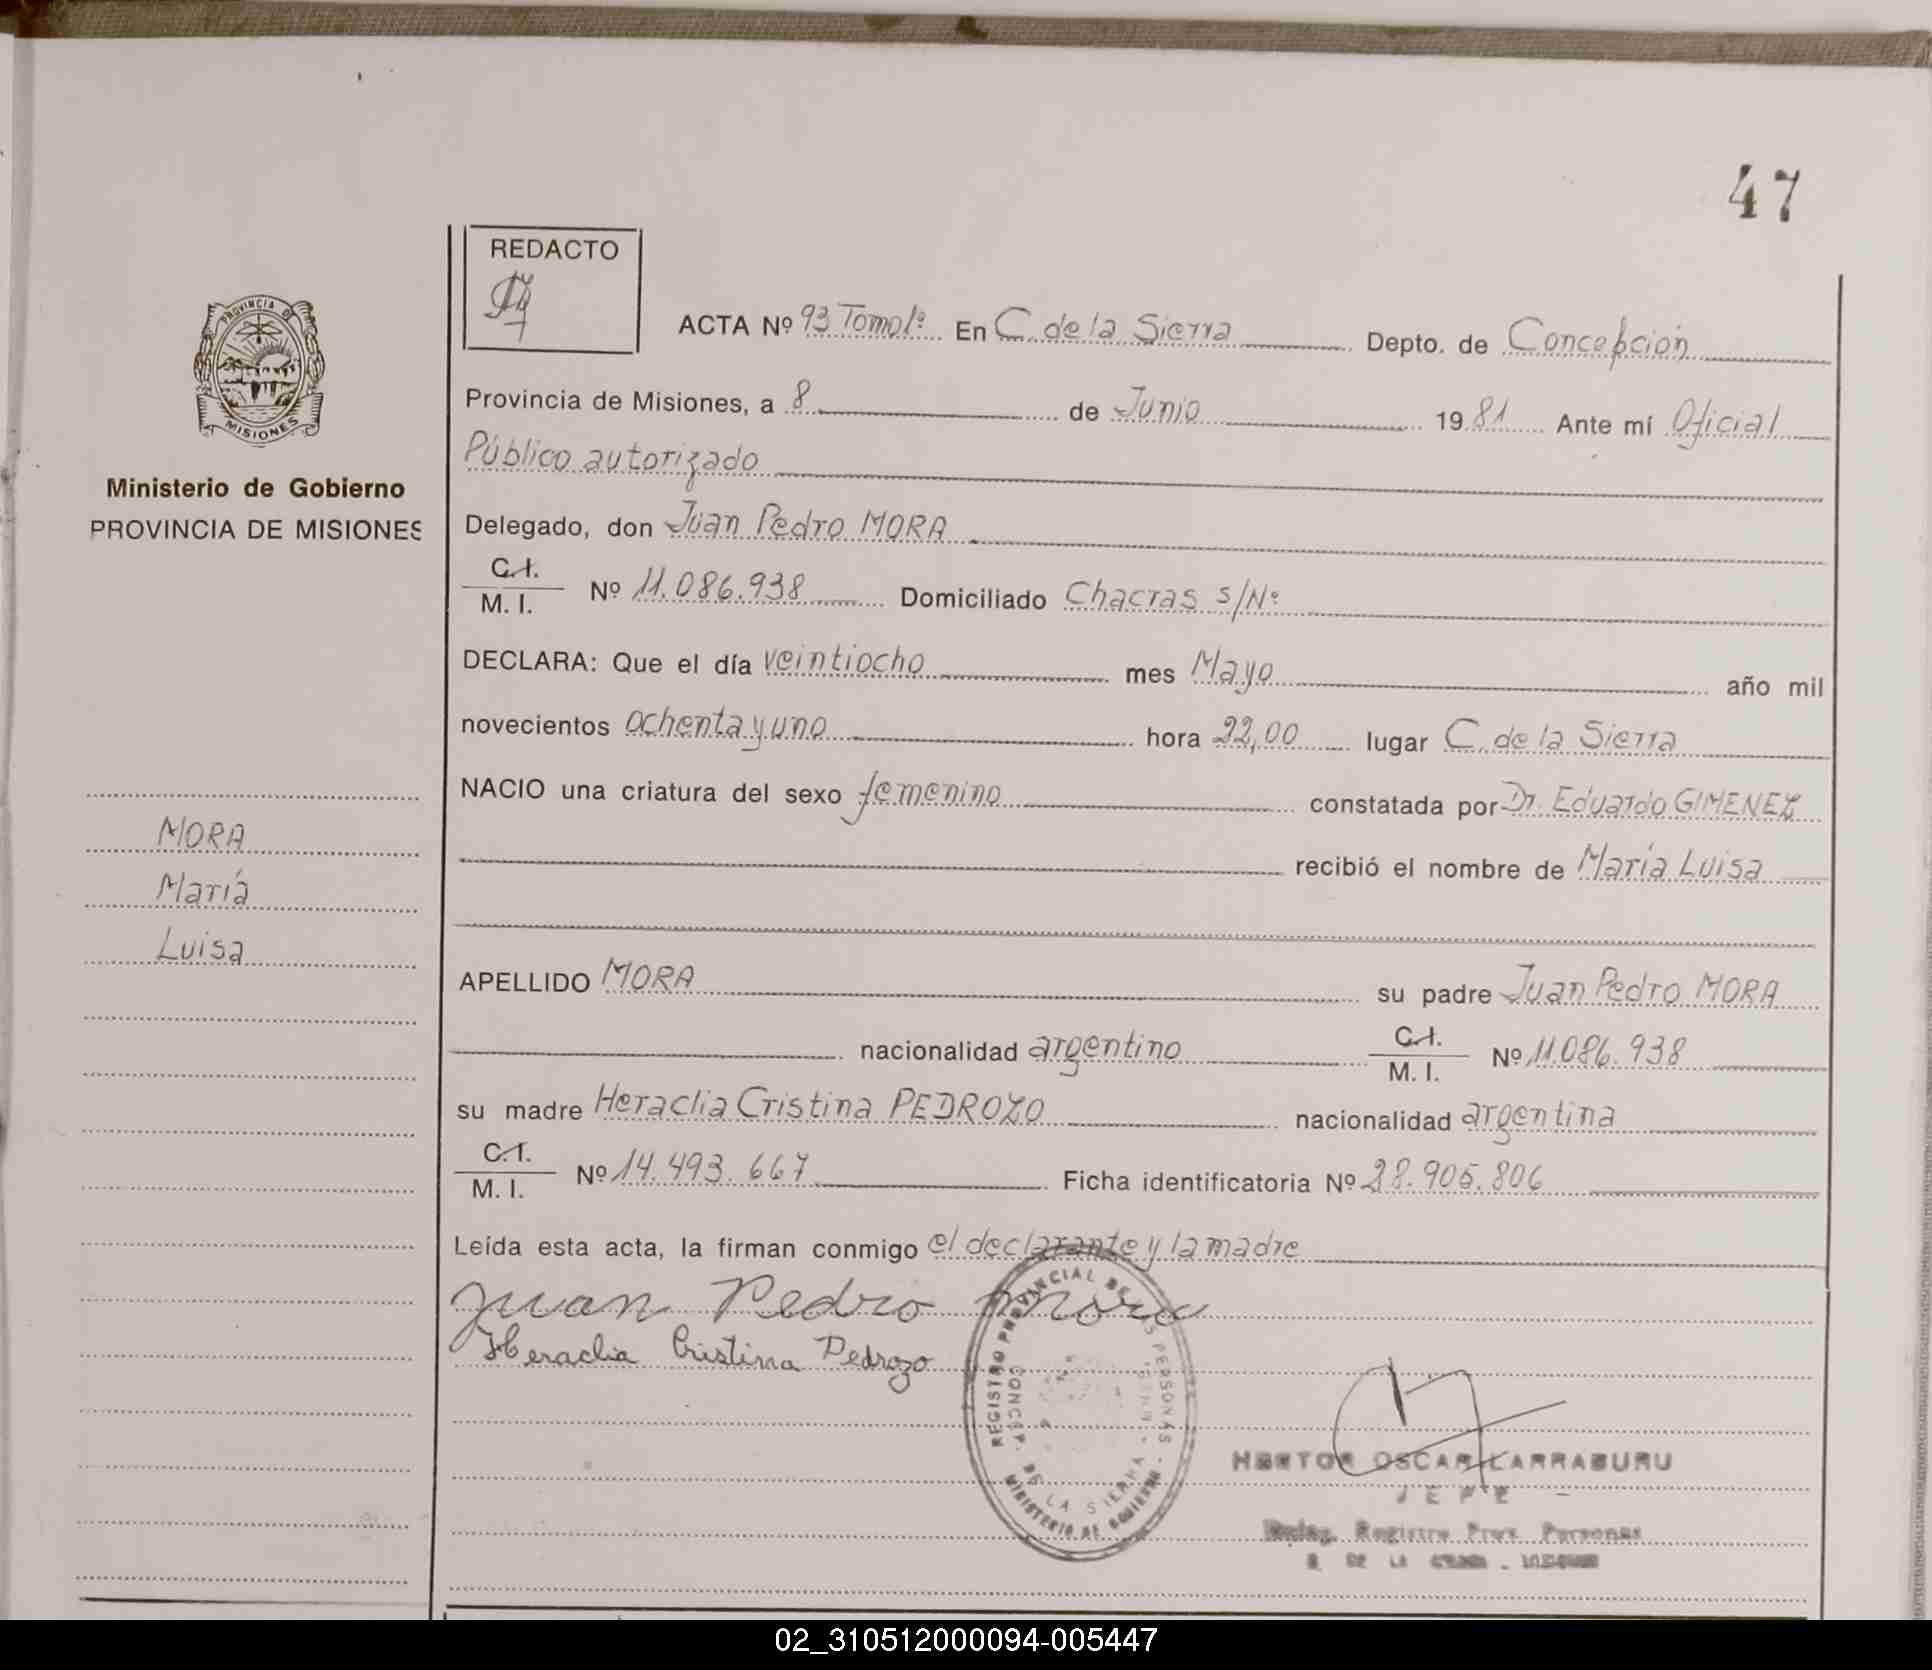 47
REDACTO
PROVINCIA DE
MISIONES
ACTA Nº 93 Tomo 1º En C. de la Sierra Depto. de Concepción
Provincia de Misiones, a 8 de Junio 1981 Ante mí Oficial
Público autorizado
Ministerio de Gobierno
PROVINCIA DE MISIONES
Delegado, don Juan Pedro MORA
C.I.
M. I. Nº 11.086.938 Domiciliado Chacras s/Nº
DECLARA: Que el día veintiocho mes Mayo año mil
novecientos ochenta y uno hora 22,00 lugar C. de la Sierra
NACIO una criatura del sexo femenino constatada por Dr. Eduardo GIMENEZ
recibió el nombre de María Luisa
MORA
María
Luisa
APELLIDO MORA su padre Juan Pedro MORA
nacionalidad argentino C.I. M. I. Nº 11.086.938
su madre Heraclia Cristina PEDROZO nacionalidad argentina
C.I.
M. I. Nº 14.493.667 Ficha identificatoria Nº 28.905.806
Leída esta acta, la firman conmigo el declarante y la madre
Juan Pedro Mora
Heraclia Cristina Pedrozo
REGISTRO PROVINCIAL DE LAS PERSONAS
CONCEP. DE LA SIERRA
MINISTERIO DE GOBIERNO
HECTOR OSCAR LARRABURU
JEFE
Deleg. Registro Prov. Personas
DE LA
02_310512000094-005447